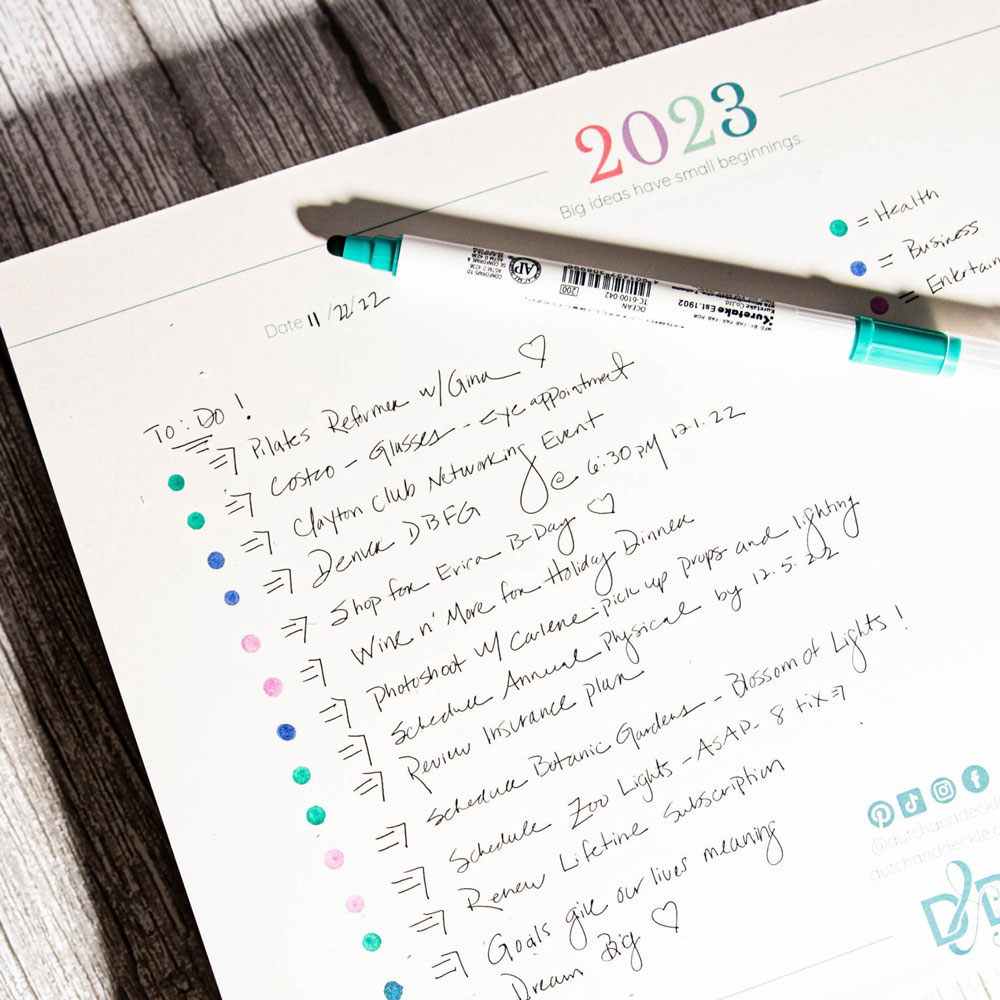 2023
Big ideas have small beginnings.
= Health
= Business
= Entertain
Date 11/22/22
To: Do!
=> Pilates Reformer w/Gina ♡
=> Costco - Glasses - Eye appointment
=> Clayton Club Networking Event
=> Denver DBFG @ 6:30 PM 12.1.22
=> Shop for Erica B-Day ♡
=> Wine n' More for Holiday Dinner
=> Photoshoot w/ Carlene - Pick up props and lighting
=> Schedule Annual Physical by 12.5.22
=> Review Insurance plan
=> Schedule Botanic Gardens - Blossom of Lights!
=> Schedule Zoo Lights - ASAP - 8 tix =>
=> Renew Lifetime Subscription
=> Goals give our lives meaning
Dream Big ♡
CONFORMS TO
ASTM D 4236
AP
OCEAN
TC-6100-042
200
Kuretake Est.1902
Kuretake Co.,Ltd.
@dutchanddeckle
dutchanddeckle.c
D&D